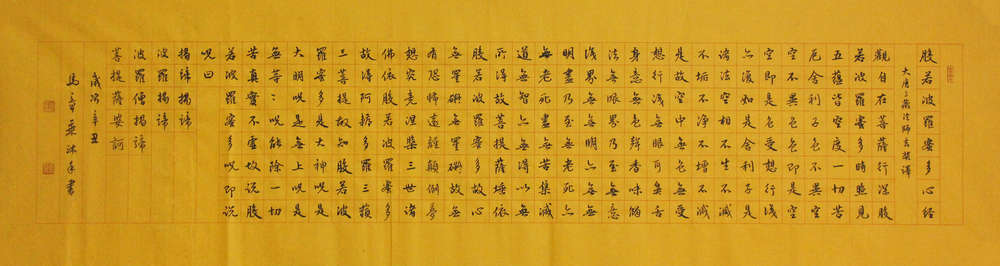 般若波羅蜜多心經
大唐三藏法師玄奘譯
觀自在菩薩行深般
若波羅蜜多時照見
五蘊皆空度一切苦
厄舍利子色不異空
空不異色色即是空
空即是色受想行識
亦復如是舍利子是
諸法空相不生不滅
不垢不淨不增不減
是故空中無色無受
想行識無眼耳鼻舌
身意無色聲香味觸
法無眼界乃至無意
識界無無明亦無無
明盡乃至無老死亦
無老死盡無苦集滅
道無智亦無得以無
所得故菩提薩埵依
般若波羅蜜多故心
無罣礙無罣礙故無
有恐怖遠離顛倒夢
想究竟涅槃三世諸
佛依般若波羅蜜多
故得阿耨多羅三藐
三菩提故知般若波
羅蜜多是大神呪是
大明呪是無上呪是
無等等呪能除一切
苦真實不虛故說般
若波羅蜜多呪即說
呪曰
揭諦揭諦
波羅揭諦
波羅僧揭諦
菩提薩婆訶
歲次辛丑
馬沐手書